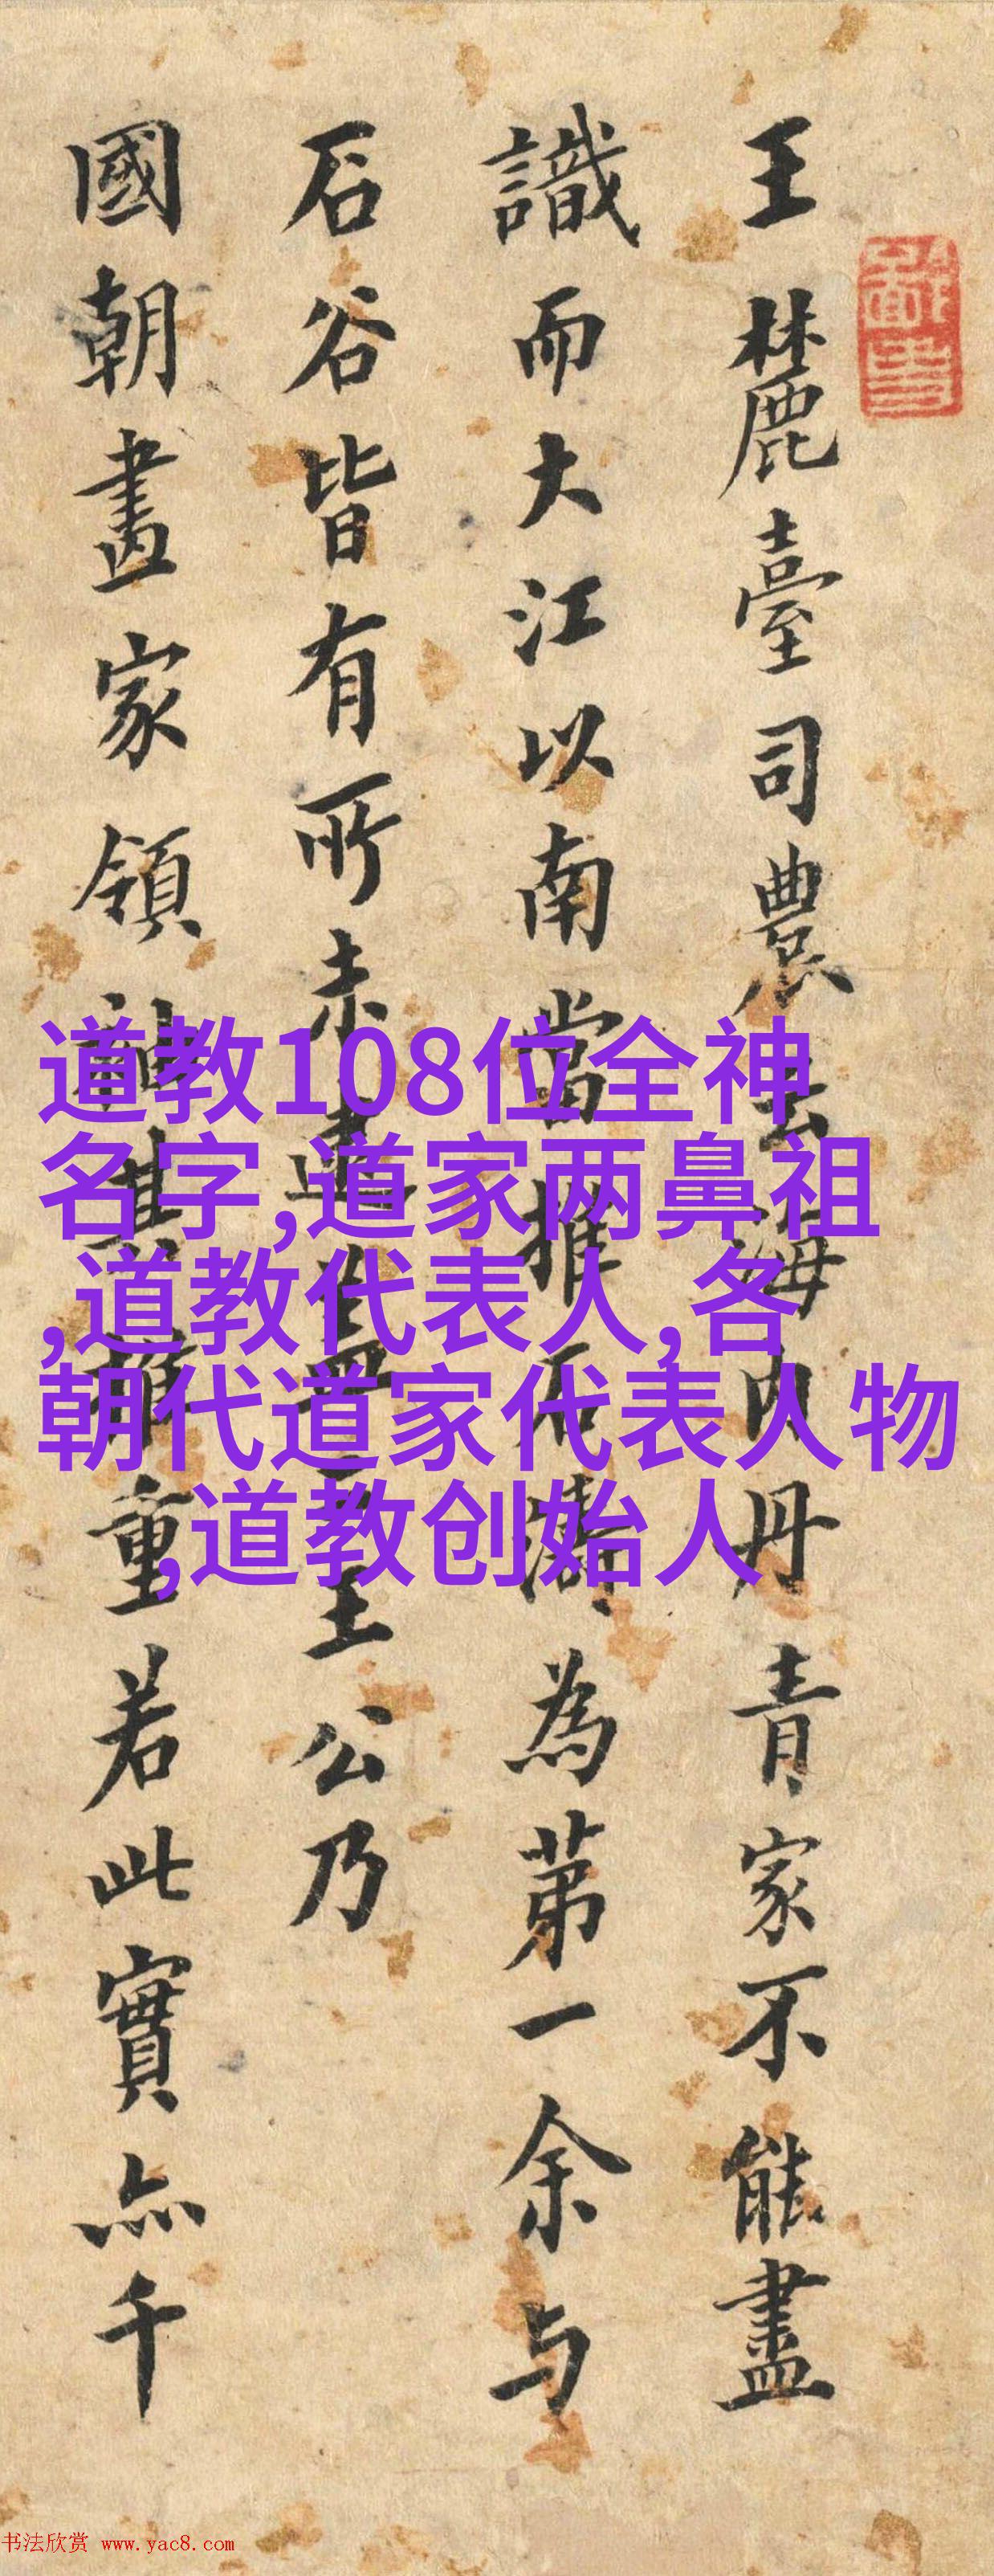 王麓臺司農云海内丹青家不能盡
識而大江以南當推石濤為第一余与
石谷皆有所未逮盖王公乃
國朝畫家領袖其推重若此實亦千
道教108位全神
名字,道家两鼻祖
,道教代表人,各
朝代道家代表人物
,道教创始人
书法欣赏 www.yac8.com